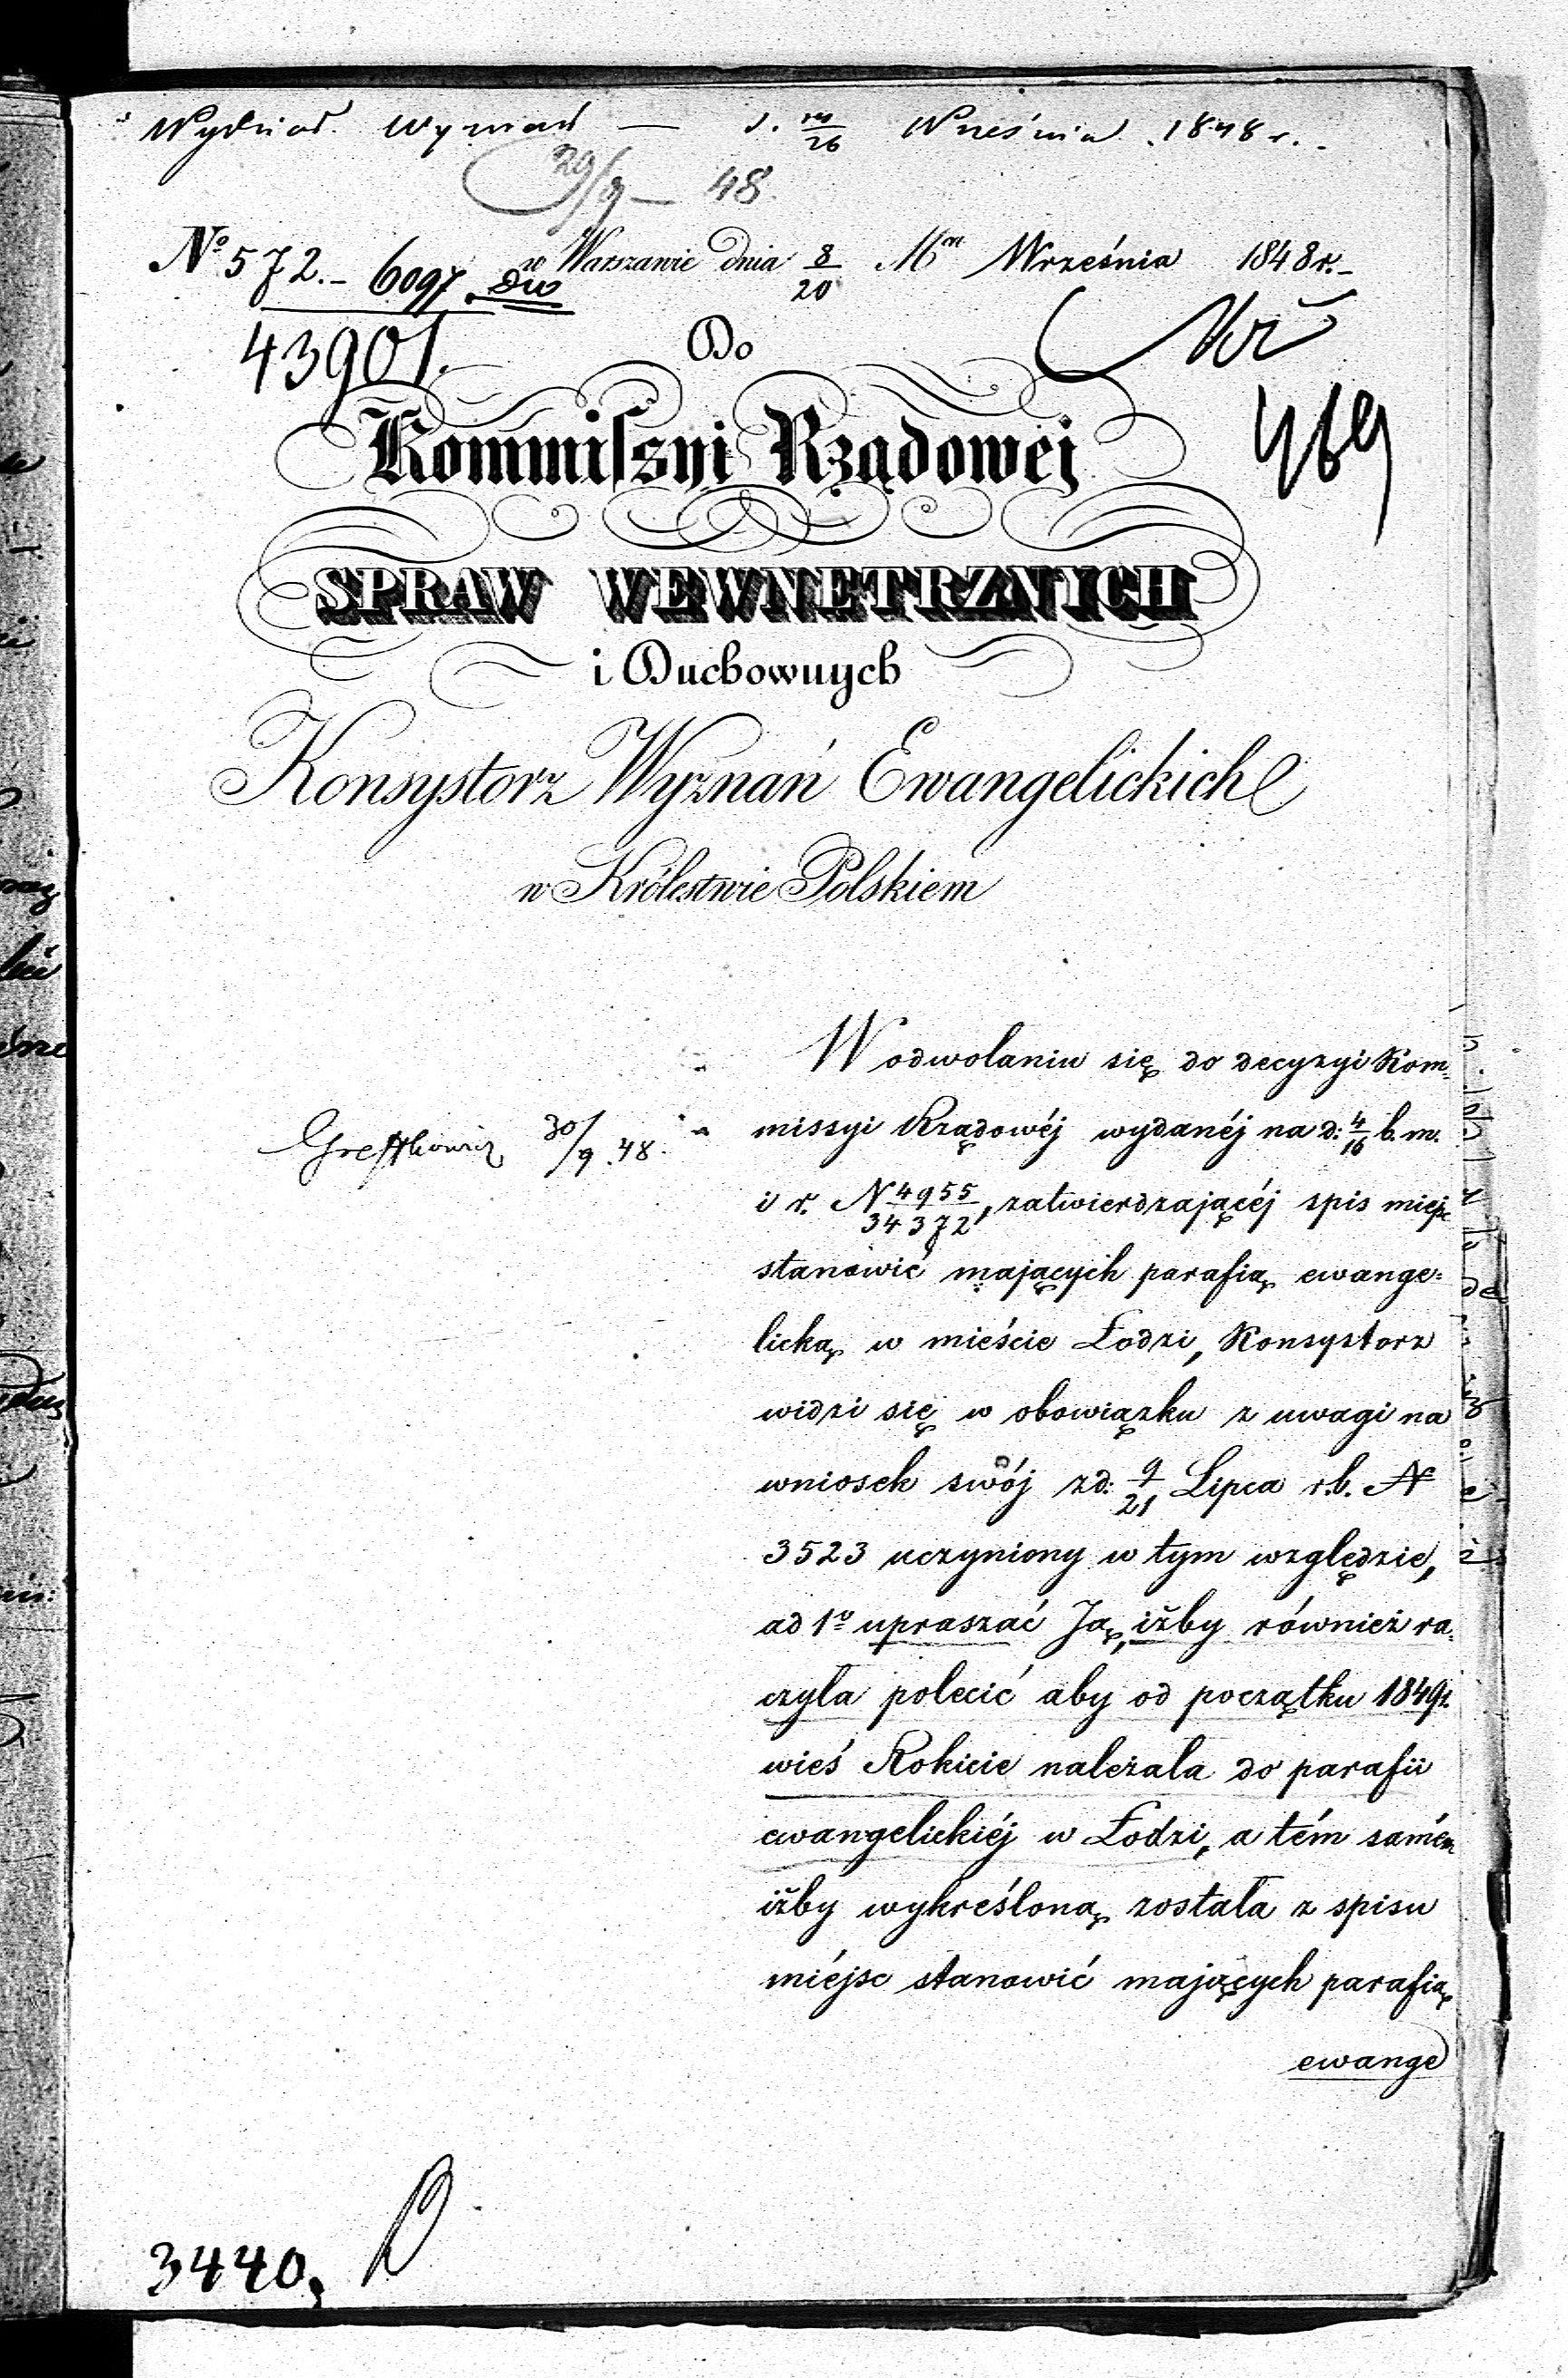 Wydział Wyznań — d. 14/26 Września 1848 r.
29/9 — 48
No 572. – 6097 w Warszawie dnia 8/20 Mca Września 1848 r. –
43901.
Do
469
Kommissyi Rządowej
SPRAW WEWNETRZNYCH
i Duchownych
Konsystorz Wyznań Ewangelickich
w Królestwie Polskiem
W odwołaniu się do decyzyi Kom=
30/9. 48.
missyi Rządowéj wydanéj na d: 4/16 b. m.
i r. N 4955/34372, zatwierdzającéj spis miejsc
stanowić mających parafią ewange=
licką w mieście Łodzi, Konsystorz
widzi się w obowiązku z uwagi na
wniosek swój z d: 9/21 Lipca r.b. N
3523 uczyniony w tym względzie,
ad 1o upraszać Ją, iżby również ra=
czyła polecić aby od początku 1849 r.
wieś Rokicie należała do parafii
ewangelickiéj w Łodzi, a tém samém
iżby wykreśloną została z spisu
miéjsc stanowić mających parafią
ewange
3440.